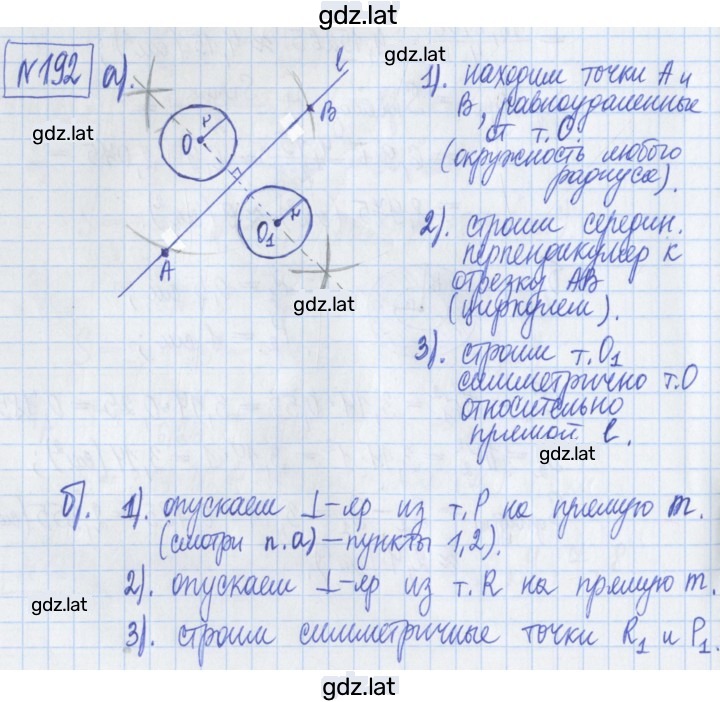 gdz.lat
№192 а).
gdz.lat
gdz.lat
l
B
O
r
O1
r
A
gdz.lat
1). находим точки А и
В, равноудаленные
от т. О.
(окружность любого
радиуса).
2). строим середин.
перпендикуляр к
отрезку АВ
(циркулем).
3). строим т.О1
симметрично т.О
относительно
прямой l.
gdz.lat
б). 1). опускаем ⊥-яр из т.Р на прямую m.
(смотри п.а) – пункты 1,2).
2). опускаем ⊥-яр из т.R на прямую m.
gdz.lat
3). строим симметричные точки R1 и P1.
gdz.lat